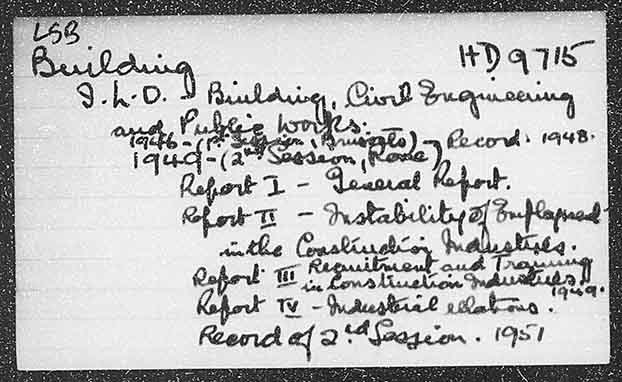 LSB
Building HD 9715
I.L.O. - Building, Civil Engineering
and Public Works.
1946 - (1st Session, Brussels) - Record. 1948.
1949 - (2nd Session, Rome)
Report I - General Report.
Report II - Instability of Employment
in the Construction Industries.
Report III Recruitment and Training
in Construction Industries. 1949.
Report IV - Industrial relations.
Record of 2nd Session. 1951